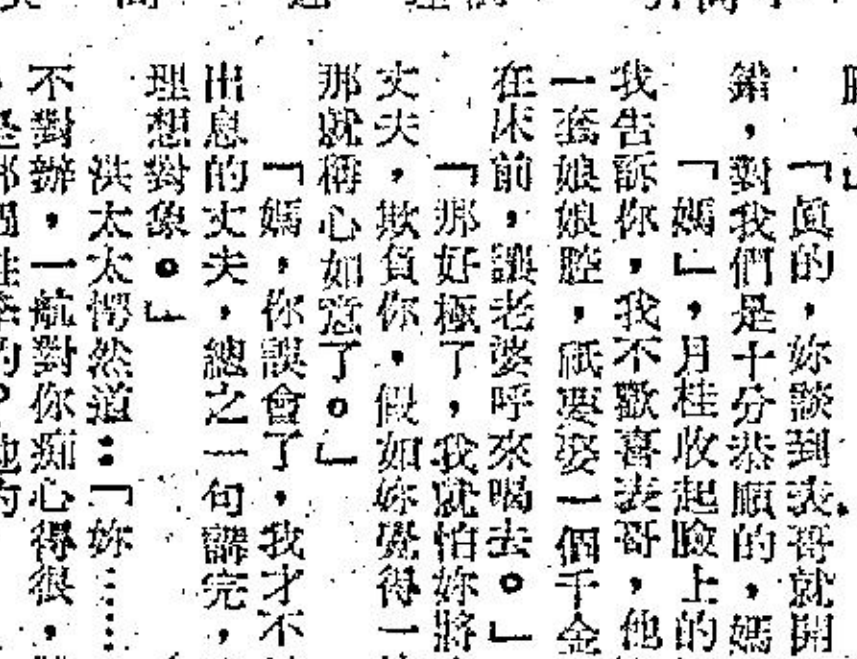 「眞的，妳談到表哥就開
錯，對我們是十分恭順的，媽
「媽」，月桂收起臉上的
我告訴你，我不歡喜表哥，他
一套娘娘腔，祇要娶一個千金
在床前，讓老婆呼來喝去。」
「那好極了，我就怕妳將
丈夫，欺負你，假如妳覺得一
那就稱心如意了。」
「媽，你誤會了，我才不
出息的丈夫，總之一句講完，
理想對象。」
洪太太愕然道：「妳……
不對辦，一航對你痴心得很，